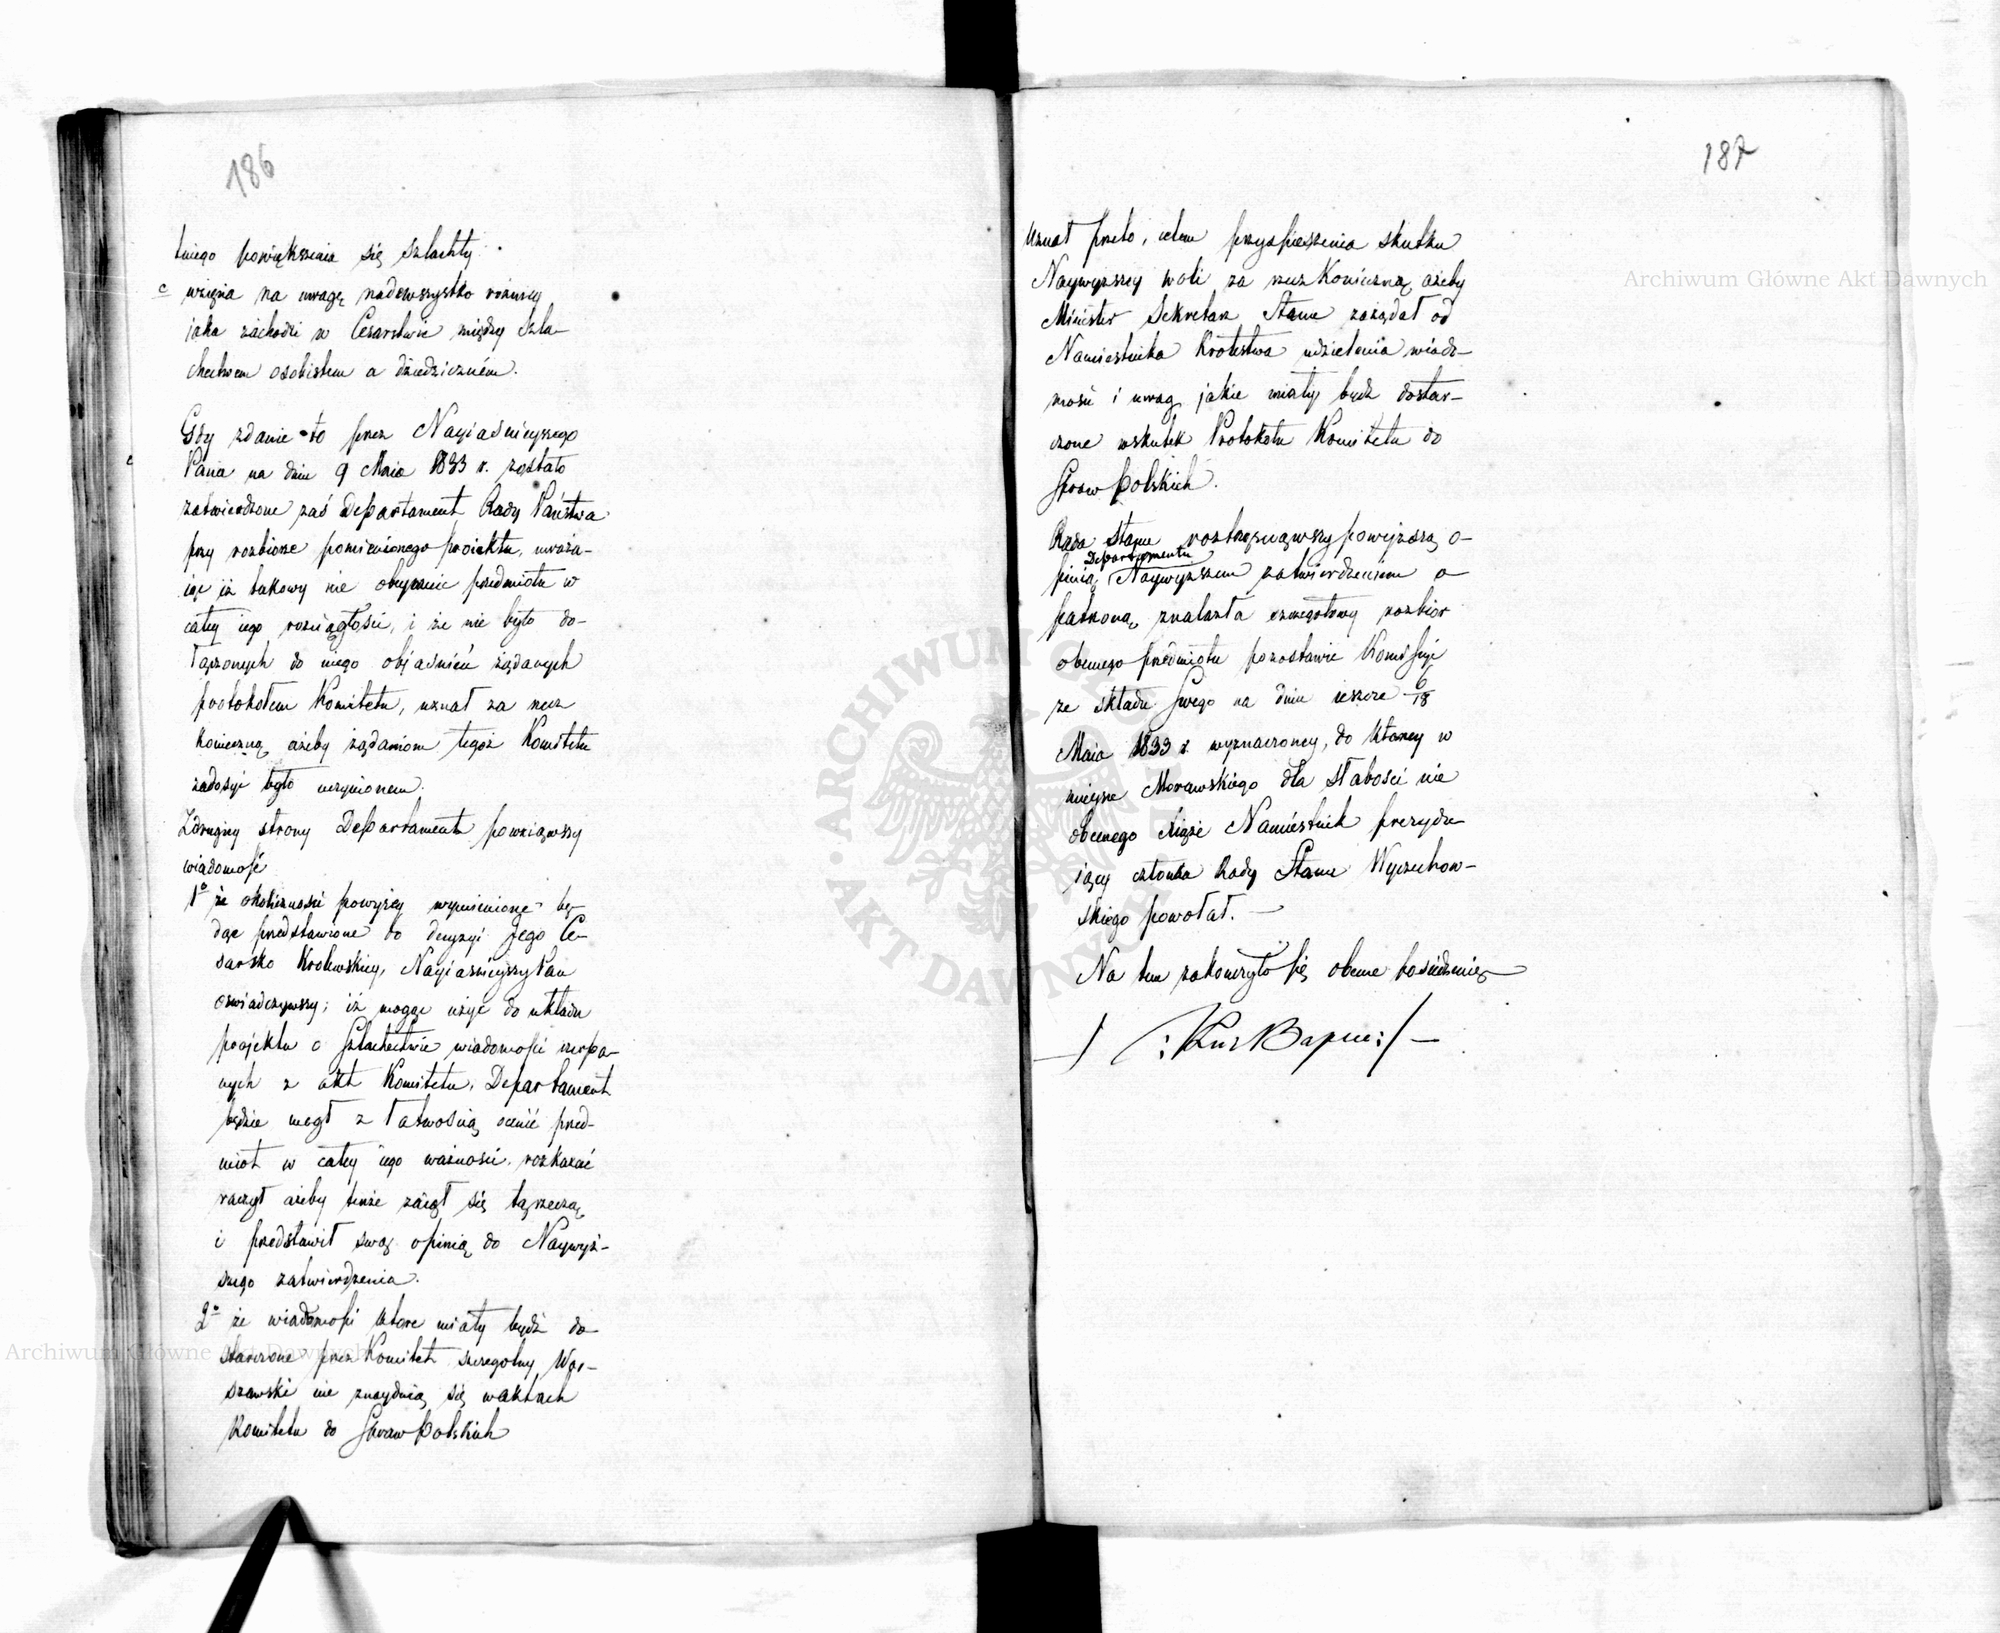 186
tniego powiększenia się szlachty.
c wzięcia na uwagę nadewszystko rożnicy
jaka zachodzi w Cesarstwie między Szla-
chectwem osobistem a dziedziczném.
Gdy zdanie to przez Nayiasnieyszego
Pana na dniu 9 Maia 1833 r. zostało
zatwierdzone zaś Departament Rady Państwa
przy rozbiorze pomienionego proiektu, uważa-
iąc iż takowy nie obeymuie przedmiotu w
całey iego rozciągłości, i że nie było do-
łączonych do niego obiasnień żądanych
protokołem Komitetu, uznał za rzecz
konieczną ażeby żądaniom tegoż Komitetu
zadosyć było uczynionem.
Zdrugiey strony Departament powziąwszy
wiadomość
1o że okoliczności powyżey wymienione bę-
dąc przedstawione do decyzyi Jego Ce-
sarsko Krolewskiey, Nayiasnieyszy Pan
oswiadczywszy, iż mogąc użyć do układu
projektu o Szlachectwie wiadomości czerpa-
nych z akt Komitetu, Departament
będzie mogł z łatwością ocenić przed-
miot w całey iego ważności, rozkazać
raczył ażeby tenże zaiął się tą rzeczą
i przedstawił swą opinią do Naywyż-
szego zatwierdzenia.
2o że wiadomości ktore miały bydź do
starczone przez Komitet szczegolny War-
szawski nie znayduią się waktach
Komitetu do Spraw Polskich
187
Uznał przeto, celem przyspieszenia skutku
Naywyższey woli za rzecz Konieczną ażeby
Minister Sekretarz Stanu zażądał od
Namiestnika Krolestwa udzielenia wiado-
mości i uwag jakie miały bydź dostar-
czone wskutek Protokołu Komitetu do
Spraw Polskich.
Rada Stanu roztrząsnąwszy powyższą o-
Departamentu
pinią Naywyższem zatwierdzeniem o-
patrzoną, znalazła szczegołowy rozbior
obecnego przedmiotu pozostawić Kommissyi
ze składu Swego na dniu ieszcze 6/18
Maia 1833 r. wyznaczoney, do ktorey w
mieysce Morawskiego dla słabości nie
obecnego Xiąże Namiestnik prezydu-
iący członka Rady Stanu Wyczechow-
skiego powołał. —
Na tem zakończyło się obecne posiedzenie
Archiwum Główne Akt Dawnych
Archiwum Główne Akt Dawnych
ARCHIWUM GŁÓWNE AKT DAWNYCH